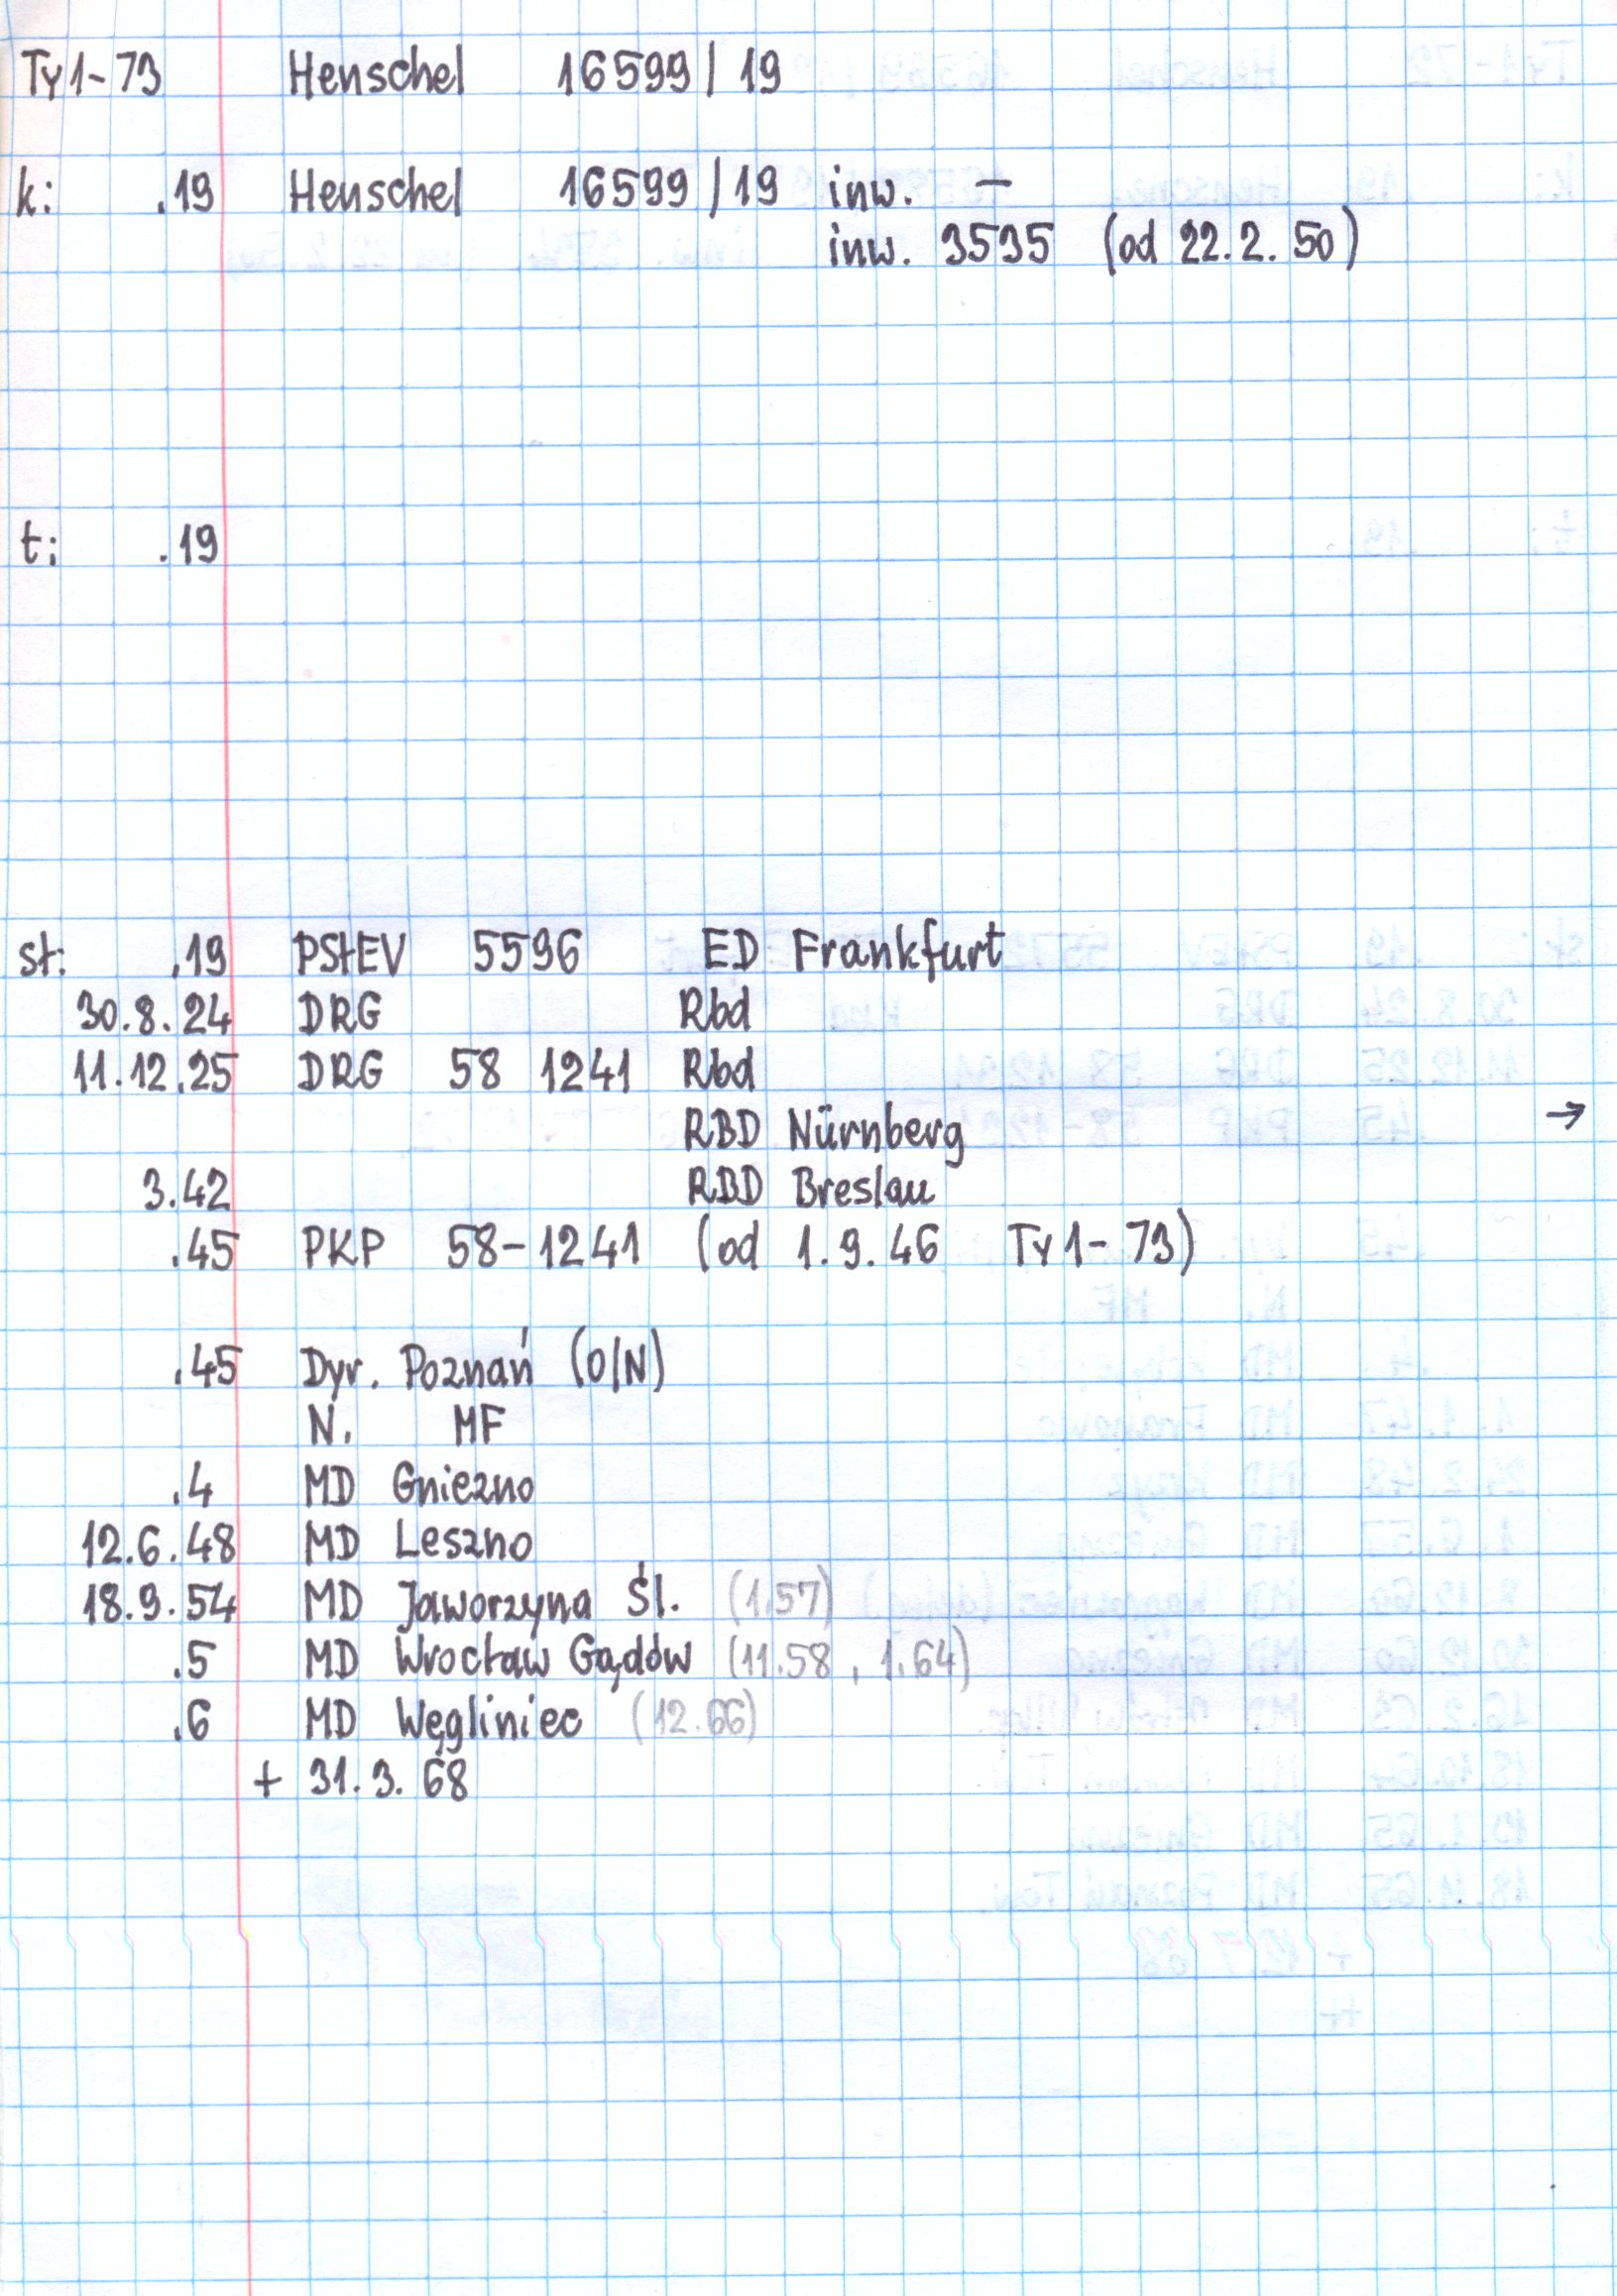 Ty1-73 Henschel 16599/19
k: .19 Henschel 16599/19 inw. —
inw. 3535 (od 22.2.50)
t: .19
st: .19 PStEV 5596 ED Frankfurt
30.8.24 DRG Rbd
11.12.25 DRG 58 1241 Rbd
RBD Nürnberg →
3.42 RBD Breslau
.45 PKP 58-1241 (od 1.9.46 Ty1-73)
.45 Dyr. Poznań (O/N)
N. MF
.4 MD Gniezno
12.6.48 MD Leszno
18.9.54 MD Jaworzyna Śl. (1.57)
.5 MD Wrocław Gądów (11.58, 1.64)
.6 MD Węgliniec (12.66)
+ 31.3.68